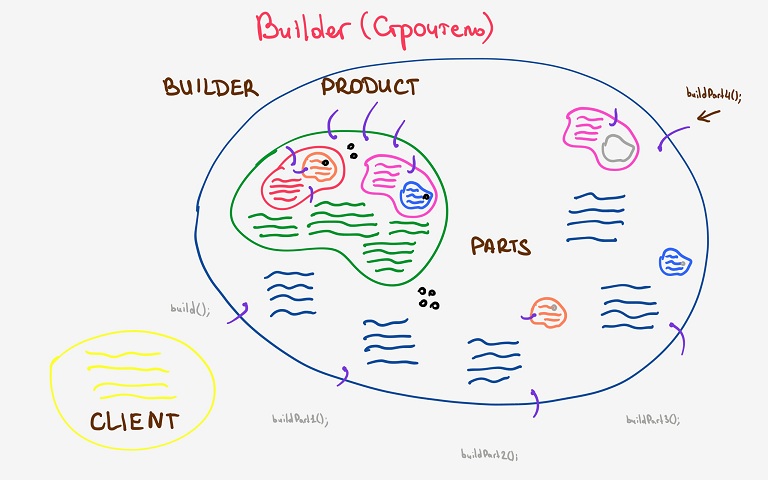 Builder (Строитель)
BUILDER
PRODUCT
buildPart4();
PARTS
build();
CLIENT
buildPart1();
buildPart3();
buildPart2();